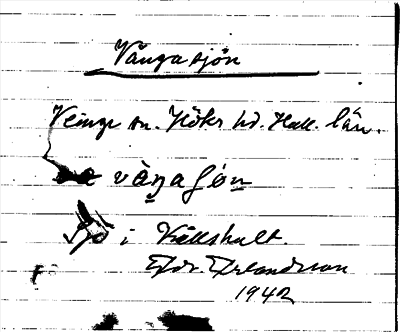 Vångasjön
Veinge sn. Höks hd. Hall. län.
vàŋaʃön
Sjö i Källshult.
Erlandsson
1942